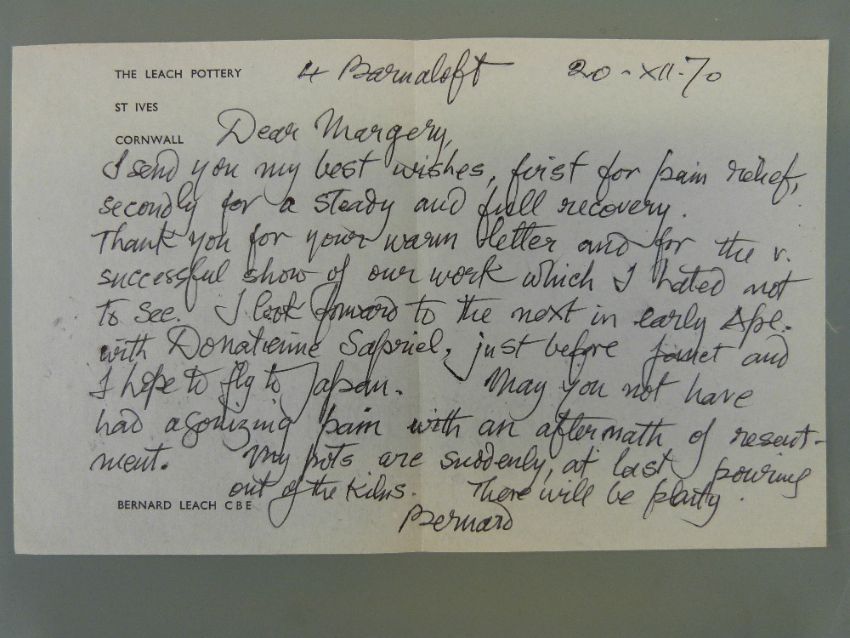 THE LEACH POTTERY 4 Barnaloft 20-XII-70
ST IVES
CORNWALL Dear Margery,
I send you my best wishes, first for pain relief,
secondly for a steady and full recovery.
Thank you for your warm letter and for the v.
successful show of our work which I hated not
to see. I look forward to the next in early Apl.
with Donatienne Sapriel, just before Janet and
I hope to fly to Japan. May you not have
had agonizing pain with an aftermath of resent-
ment. My pots are suddenly, at last pouring
out of the Kilns. There will be plenty.
BERNARD LEACH CBE
Bernard